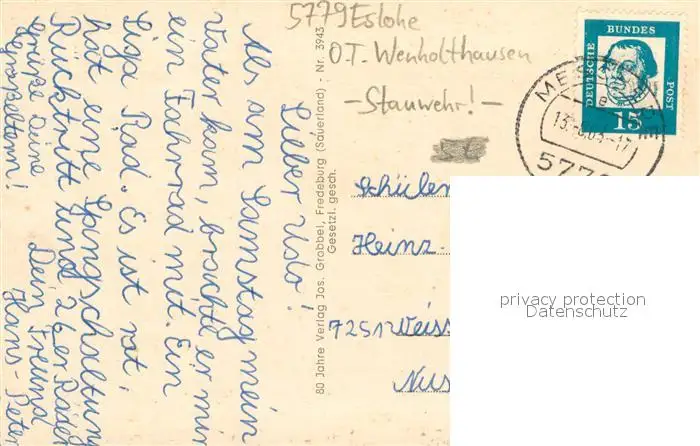 Lieber Udo!
Als am Samstag mein
Vater kam, brachte er mir
ein Fahrrad mit. Ein
Liga Rad. Es ist rot,
hat eine Spingschaltung
Rücktritt und 26er Räder
Dein Freund
Hans-Peter
Grüße Deine
5779 Eslohe
O.T. Wenholthausen
-Stauwehr!-
80 Jahre Verlag Jos. Grobbel, Fredeburg (Sauerland) · Nr. 3943
Gesetzl. gesch.
DEUTSCHE BUNDES POST
15
MES
577
Schüler
Heinz-
7251 Weiss
Nus
privacy protection
Datenschutz